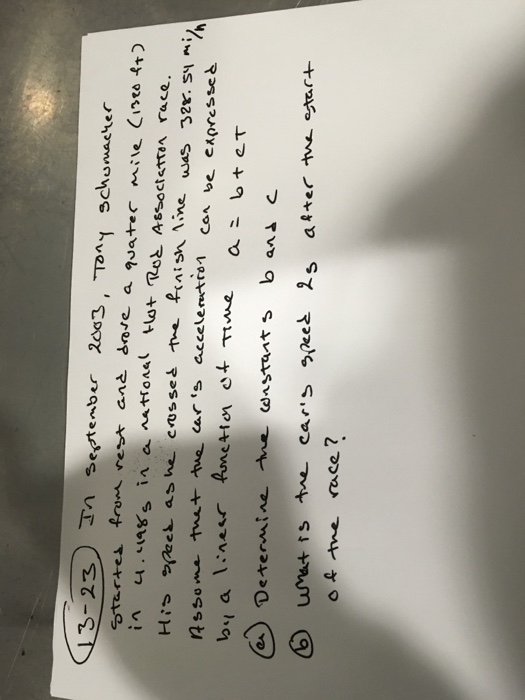 13-23 In september 2003, Tony schumacher
started from rest and drove a quater mile (1320 ft)
in 4.498s in a national Hot Rod Association race.
His speed as he crossed the finish line was 328.54 mi/h
Assume that the car's acceleration can be expressed
by a linear function of time a = b + ct
(a) Determine the constants b and c
(b) what is the car's speed 2s after the start
of the race?